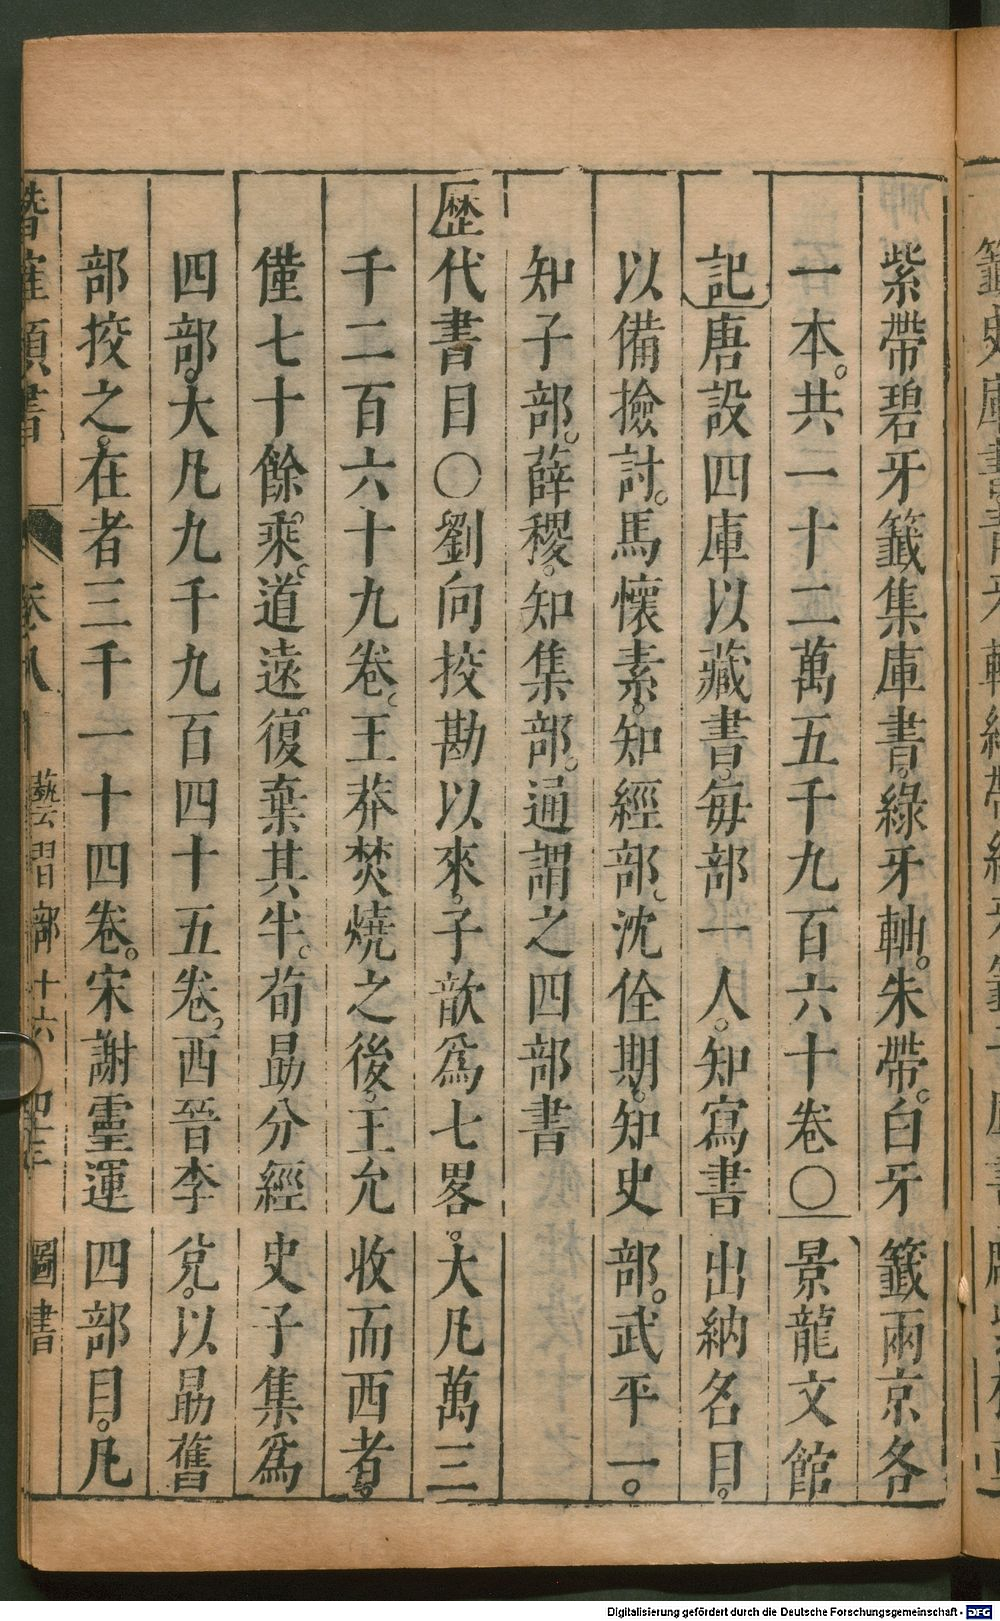 紫帶碧牙籤集庫書。綠牙軸。朱帶。白牙籤兩京各
一本。共一十二萬五千九百六十卷〇景龍文館
記唐設四庫以藏書。每部一人。知寫書出納名目。
以備撿討。馬懷素。知經部。沈佺期。知史部。武平一。
知子部。薛稷。知集部。通謂之四部書
歷代書目〇劉向挍勘以來。子歆爲七畧。大凡萬三
千二百六十九卷。王莽焚燒之後。王允收而西者。
僅七十餘乘。道遠。復棄其半。荀勗分經史子集爲
四部。大凡九千九百四十五卷。西晉李兌。以勗舊
部挍之。在者三千一十四卷。宋謝靈運四部目。凡
卷八 藝習部十六 圖書
Digitalisierung gefördert durch die Deutsche Forschungsgemeinschaft - DFG